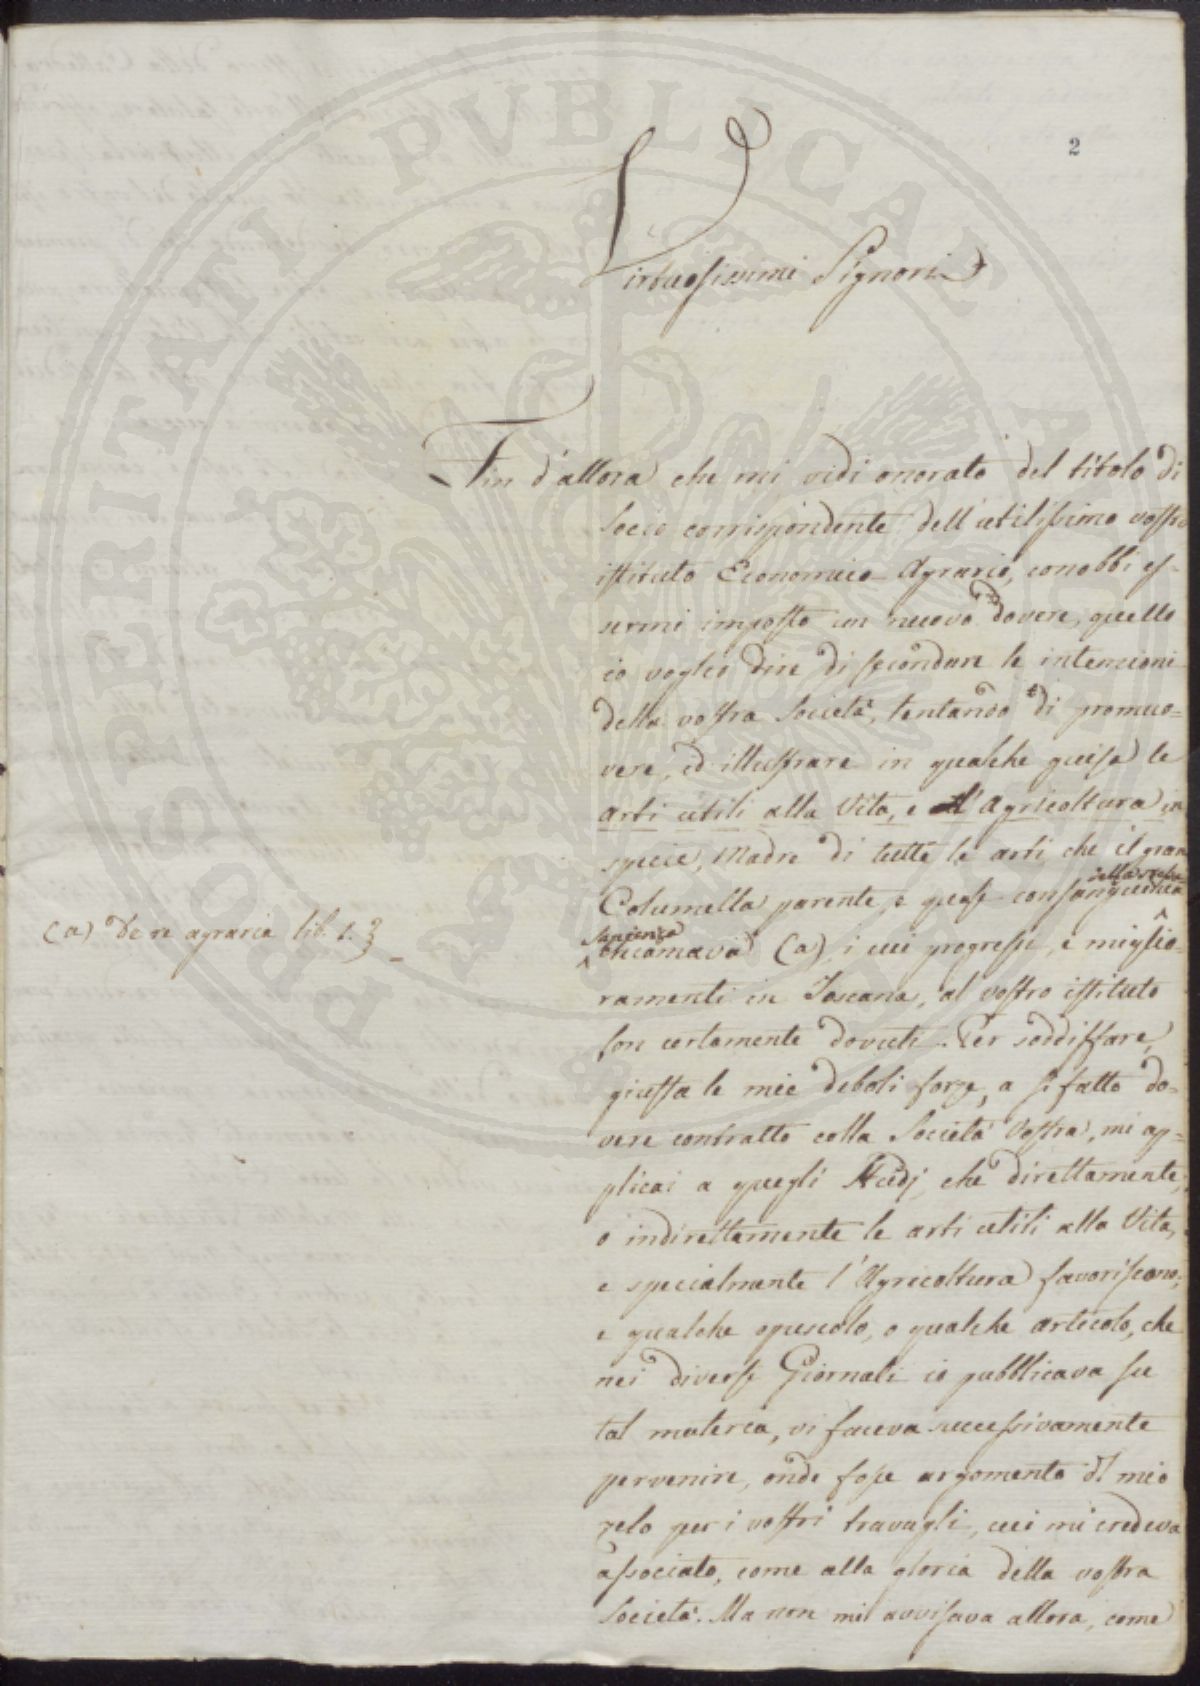 2
Virtuosissimi Signori
Fin d'allora che mi vidi onorato del titolo di
socio corrispondente dell'utilissimo vostro
istituto Economico-Agrario, conobbi es-
sermi imposto un nuovo dovere, quello
io voglio dire di secondare le intenzioni
della vostra Società, tentando di promuo-
vere, ed illustrare in qualche guisa le
arti utili alla Vita, e l'Agricoltura in
specie, Madre di tutte le arti, che il gran
Columella parente, e quasi consanguinea
della stessa
sapienza
chiamava (a), i cui progressi, e miglio-
(a) De re agraria lib. 1. 3
ramenti in Toscana, al vostro istituto
son certamente dovuti. Per soddisfare,
giusta le mie deboli forze, a sì fatto do-
vere contratto colla Società Vostra, mi ap-
plicai a quegli studj, che direttamente,
o indirettamente le arti utili alla Vita,
e specialmente l'Agricoltura favoriscono;
e qualche opuscolo, o qualche articolo, che
nei diversi Giornali io pubblicava su
tal materia, vi faceva successivamente
pervenire, onde fosse argomento del mio
zelo per i vostri travagli, cui mi credeva
associato, come alla gloria della vostra
Società. Ma non mi avvisava allora, come
PROSPERITATI PVBLICAE AVGENDAE